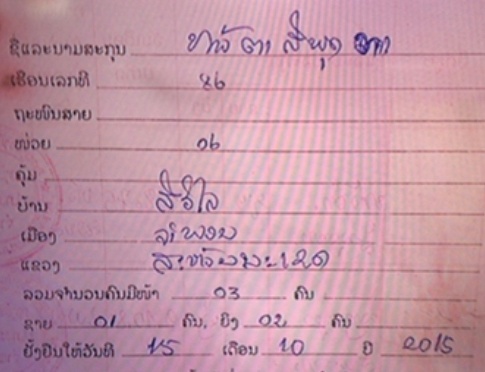 ຊື່ແລະນາມສະກຸນ ທ້າວ ຕາ ສີພຸດ
ເຮືອນເລກທີ 26
ຖະໜົນສາຍ
ໜ່ວຍ 06
ຄຸ້ມ
ບ້ານ ສີວິໄລ
ເມືອງ ລຳງາມ
ແຂວງ ສາລະວັນ
ລວມຈຳນວນຄົນມີໜ້າ 03 ຄົນ
ຊາຍ 01 ຄົນ, ຍິງ 02 ຄົນ
ຢັ້ງຢືນໃຫ້ວັນທີ 15 ເດືອນ 10 ປີ 2015